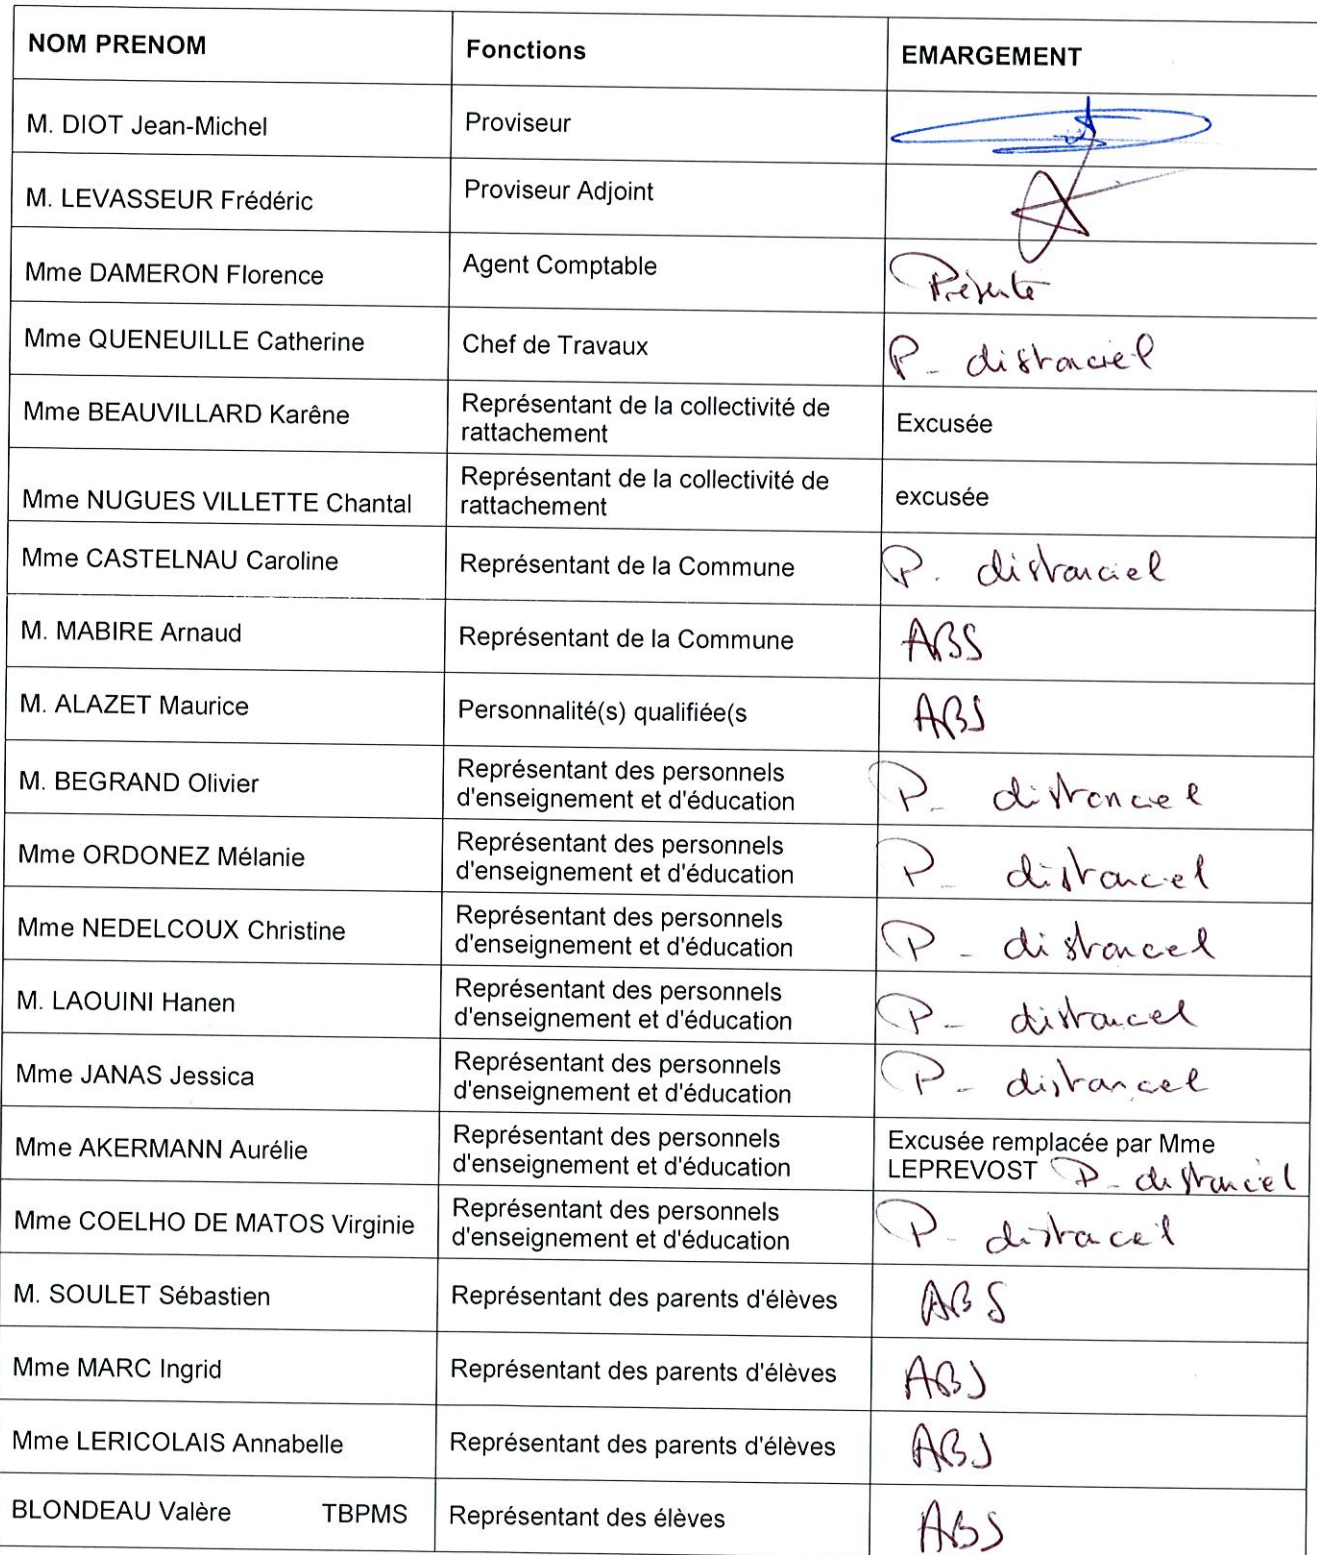 NOM PRENOM Fonctions EMARGEMENT
M. DIOT Jean-Michel Proviseur
M. LEVASSEUR Frédéric Proviseur Adjoint
Mme DAMERON Florence Agent Comptable Présente
Mme QUENEUILLE Catherine Chef de Travaux P- distanciel
Mme BEAUVILLARD Karêne Représentant de la collectivité de
rattachement Excusée
Mme NUGUES VILLETTE Chantal Représentant de la collectivité de
rattachement excusée
Mme CASTELNAU Caroline Représentant de la Commune P. distanciel
M. MABIRE Arnaud Représentant de la Commune ABS
M. ALAZET Maurice Personnalité(s) qualifiée(s ABS
M. BEGRAND Olivier Représentant des personnels
d'enseignement et d'éducation P- distanciel
Mme ORDONEZ Mélanie Représentant des personnels
d'enseignement et d'éducation P- distanciel
Mme NEDELCOUX Christine Représentant des personnels
d'enseignement et d'éducation P- distanciel
M. LAOUINI Hanen Représentant des personnels
d'enseignement et d'éducation P- distanciel
Mme JANAS Jessica Représentant des personnels
d'enseignement et d'éducation P- distanciel
Mme AKERMANN Aurélie Représentant des personnels
d'enseignement et d'éducation Excusée remplacée par Mme
LEPREVOST P- distanciel
Mme COELHO DE MATOS Virginie Représentant des personnels
d'enseignement et d'éducation P- distanciel
M. SOULET Sébastien Représentant des parents d'élèves ABS
Mme MARC Ingrid Représentant des parents d'élèves ABS
Mme LERICOLAIS Annabelle Représentant des parents d'élèves ABS
BLONDEAU Valère TBPMS Représentant des élèves ABS